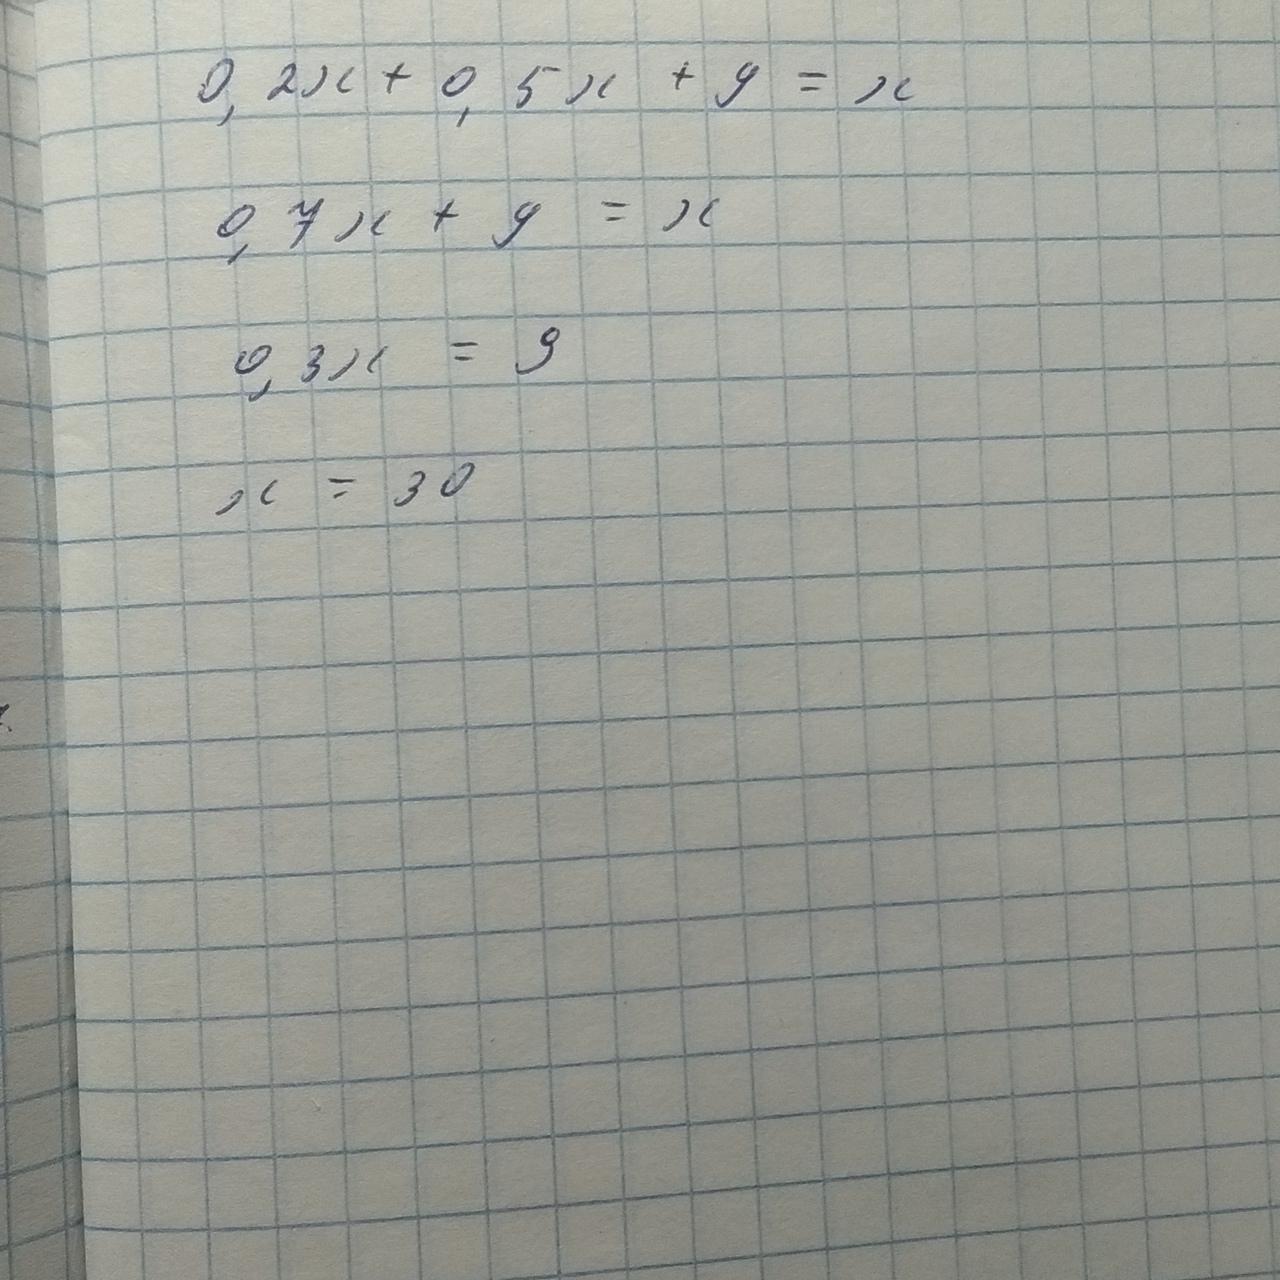 0,2x + 0,5x + 9 = x
0,7x + 9 = x
0,3x = 9
x = 30